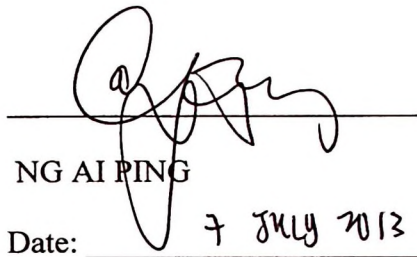 NG AI PING
Date: 7 JULY 2013